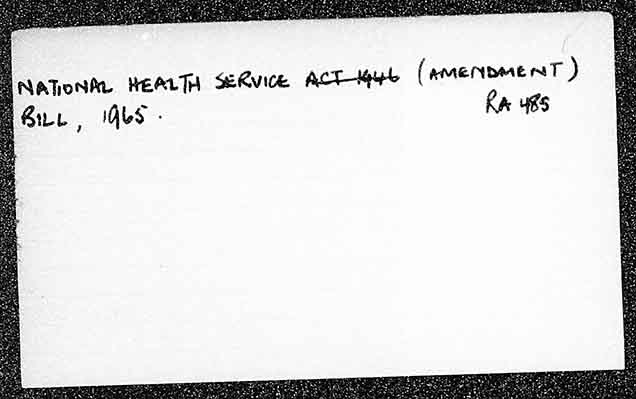 NATIONAL HEALTH SERVICE ACT 1946 (AMENDMENT)
BILL, 1965.
RA 485